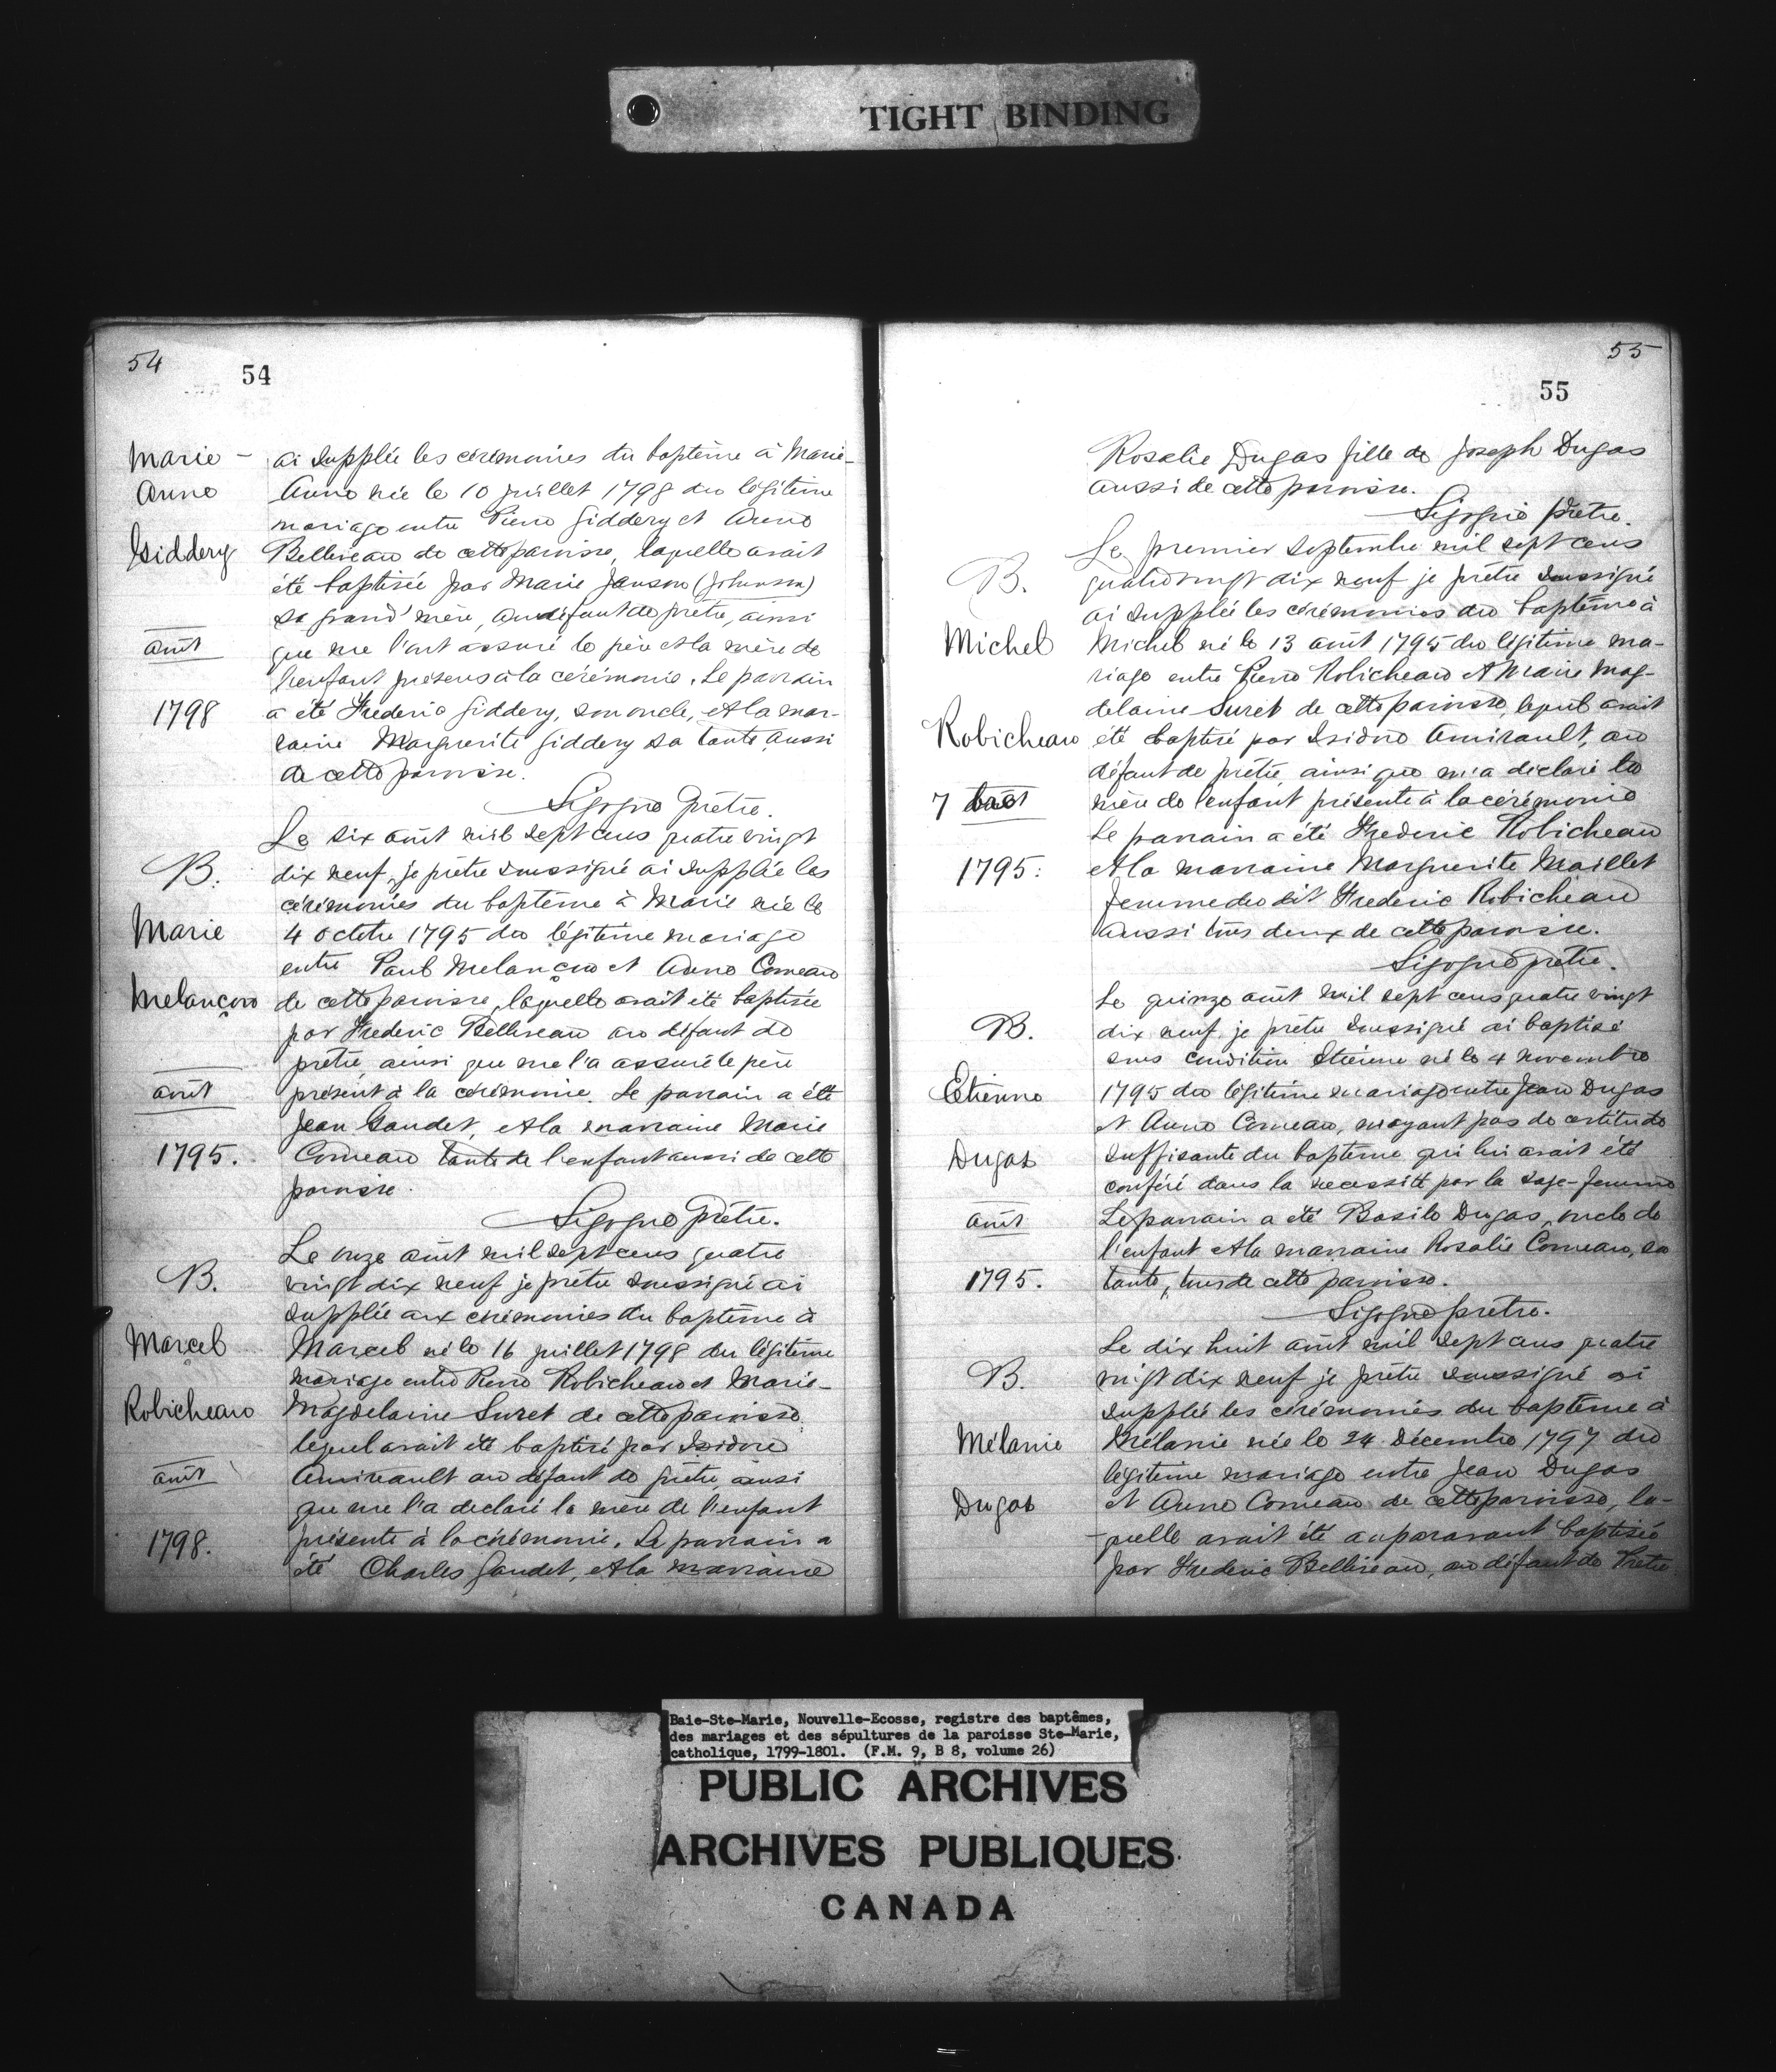 TIGHT BINDING
54
54
Marie-
Anne
Giddery
août
1798
ai supplée les cérémonies du baptême à Marie-
Anne née le 10 juillet 1798 du légitime
mariage entre Pierre Giddery et Anne
Belliveau de cette paroisse, laquelle avait
été baptisée par Marie Janson (Johnson)
sa grand'mère, au défaut de prêtre, ainsi
que me l'ont assuré le père et la mère de
l'enfant présens à la cérémonie. Le parrain
a été Frederic Giddery, son oncle, et la mar-
raine Marguerite Giddery sa tante aussi
de cette paroisse.
Sigogne Prêtre.
B.
Marie
Melançon
août
1795.
Le six août mil sept cens quatre vingt
dix neuf, je prêtre soussigné ai supplée les
cérémonies du baptême à Marie née le
4 octobre 1795 du légitime mariage
entre Paul Melançon et Anne Comeau
de cette paroisse, laquelle avait été baptisée
par Frederic Belliveau au défaut de
prêtre, ainsi que me l'a assuré le père
présent à la cérémonie. Le parrain a été
Jean Gaudet, et la marraine Marie
Comeau tante de l'enfant aussi de cette
paroisse.
Sigogne Prêtre.
B.
Marcel
Robicheau
août
1798.
Le onze août mil sept cens quatre
vingt dix neuf je prêtre soussigné ai
supplée aux cérémonies du baptême à
Marcel né le 16 juillet 1798 du légitime
mariage entre Pierre Robicheau et Marie-
Magdelaine Suret de cette paroisse
lequel avait été baptisé par Isidore
Amirault au défaut de prêtre, ainsi
que me l'a declaré la mère de l'enfant
présente à la cérémonie. Le parrain a
été Charles Gaudet, et la marraine
55
55
Rosalie Dugas fille de Joseph Dugas
aussi de cette paroisse.
Sigogne Prêtre.
B.
Michel
Robicheau
7
1795.
Le premier septembre mil sept cens
quatre vingt dix neuf je prêtre soussigné
ai supplée les cérémonies du baptême à
Michel né le 13 août 1795 du légitime ma-
riage entre Pierre Robicheau et Marie Mag-
delaine Suret de cette paroisse, lequel avait
été baptisé par Isidore Amirault, au
défaut de prêtre, ainsi que m'a declaré la
mère de l'enfant présente à la cérémonie
Le parrain a été Frederic Robicheau
et la marraine Marguerite Maillet
femme du dit Frederic Robicheau
aussi tous deux de cette paroisse.
Sigogne prêtre.
B.
Etienne
Dugas
août
1795.
Le quinze août mil sept cens quatre vingt
dix neuf, je prêtre soussigné ai baptisé
sous condition Etienne né le 4 novembre
1795 du légitime mariage entre Jean Dugas
et Anne Comeau, n'ayant pas de certitude
suffisante du baptême qui lui avait été
conféré dans la necessité par la sage-femme
Le parrain a été Basile Dugas, oncle de
l'enfant et la marraine Rosalie Comeau, sa
tante, tous de cette paroisse.
Sigogne prêtre.
B.
Mélanie
Dugas
Le dix huit août mil sept cens quatre
vingt dix neuf je prêtre soussigné ai
supplée les cérémonies du baptême à
Mélanie née le 24 Décembre 1797 du
légitime mariage entre Jean Dugas
et Anne Comeau de cette paroisse, la-
quelle avait été auparavant baptisée
par Frederic Belliveau, au défaut de Prêtre
Baie-Ste-Marie, Nouvelle-Ecosse, registre des baptêmes,
des mariages et des sépultures de la paroisse Ste-Marie,
catholique, 1799-1801. (F.M. 9, B 8, volume 26)
PUBLIC ARCHIVES
ARCHIVES PUBLIQUES
CANADA